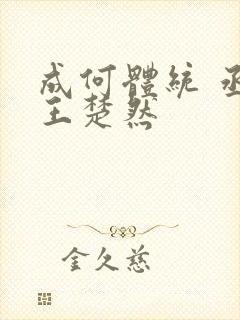 成何體統 丞
王楚然
金久慈